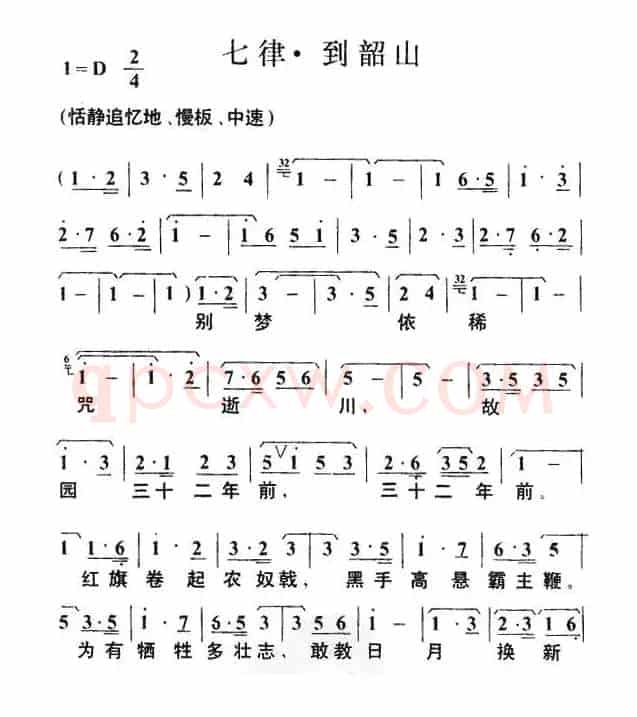 七律·到韶山
1=D 2/4
(恬静追忆地、慢板、中速)
( 1·2 | 3·5 | 2 4 | 32 1 – | 1 – | 1 6·5 | 1·3 |
2·7 6·2 | 1 – | 1 6 5 1 | 3·5 | 2·3 | 2·7 6·2 |
1 – | 1 – | 1 ) 1·2 | 3 – | 3·5 | 2 4 | 32 1 – | 1 – |
别 梦 依 稀
6 1 – | 1·2 | 7·6 5 6 | 5 – | 5 – | 3·5 3 5 |
咒 逝 川、 故
qpcxw.com
1·3 | 2·1 2 3 | 5 V 1 5 3 | 2·6 3 5 2 | 1 – |
园 三十二年前、 三十二年前。
1 1·6 | 1·2 | 3·2 3 | 3 3·5 | 1·7 | 6·3 5 |
红旗卷起农奴戟,黑手高悬霸主鞭。
5 3·5 | 1·2 | 6·5 3 | 3 5 6 | 1 – | 2·3 1 6 |
为有牺牲多壮志、敢教日月换新